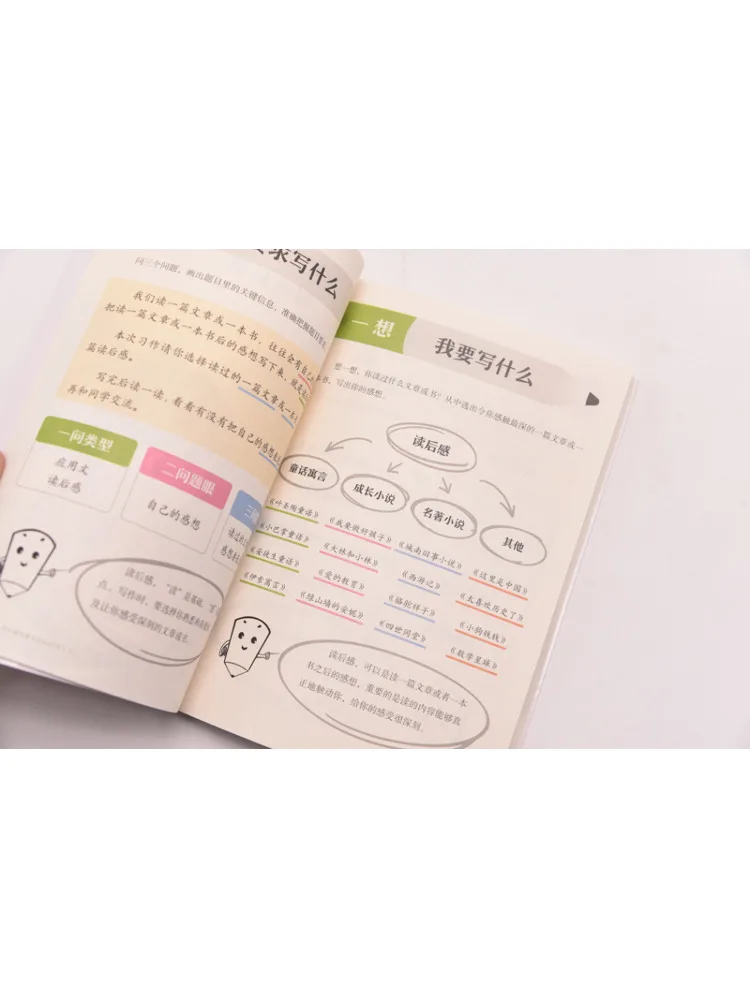 求写什么
问三个问题，画出题目里的关键信息，准确把握题目要求
我们读一篇文章或一本书，往往会有自己的
把读一篇文章或一本书后的感想写下来，就是
本次习作请你选择读过的一篇文章或一本
篇读后感。
写完后读一读，看看有没有把自己的感想表
再和同学交流。
一问类型
应用文
读后感
二问题眼
自己的感想
三
读过的
感想
读后感，“读”是基础，“
点，写作时，要选择你熟悉
及让你感受深刻的文章或书。
一想
我要写什么
想一想，你读过什么文章或书？从中选出令你感触最深的一篇文章或一
本书，写出你的感想。
读后感
童话寓言
成长小说
名著小说
其他
《叶圣陶童话》
《小巴掌童话》
《安徒生童话》
《伊索寓言》
《我要做好孩子》
《大林和小林》
《爱的教育》
《绿山墙的安妮》
《城南旧事小说》
《西游记》
《骆驼祥子》
《四世同堂》
《这里是中国》
《太喜欢历史了》
《小狗钱钱》
《数学星球》
读后感，可以是读一篇文章或者一本
书之后的感想，重要的是读的内容能够真
正地触动你，给你的感受很深刻。